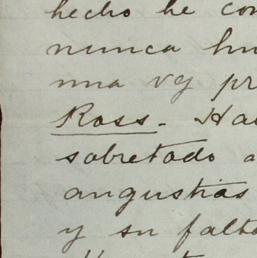 hecho he con
nunca hu
una vy pr
Ross. Ha
sobretodo a
angustias
y su falta